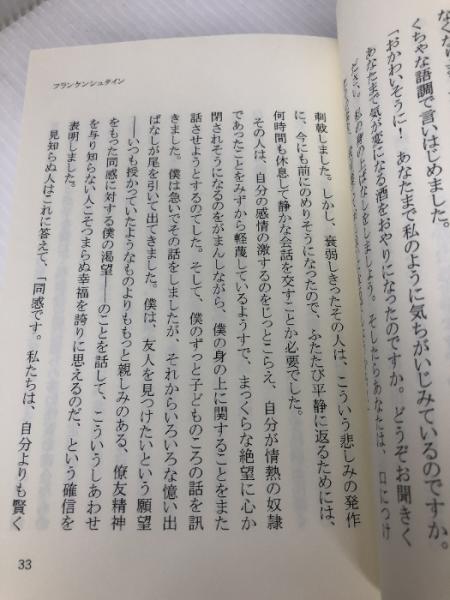 なくだ
くちゃな語調で言いはじめました。
「おかわいそうに！ あなたまで私のように気ちがいじみているのですか。
あなたまで気が変になる酒をおやりになったのですか。どうぞお聞きく
私の身の上ばなしをしましょう。そしたらあなたは、口につけ
フランケンシュタイン
刺戟しました。しかし、衰弱しきったその人は、こういう悲しみの発作
に、今にも前にのめりそうになったので、ふたたび平静に返るためには、
何時間も休息して静かな会話を交すことが必要でした。
その人は、自分の感情の激するのをじっとこらえ、自分が情熱の奴隷
であったことをみずから軽蔑しているようすで、まっくらな絶望に心が
閉されそうになるのをがまんしながら、僕の身の上に関することをまた
話させようとするのでした。そして、僕のずっと子どものころの話を訊
きました。僕は急いでその話をしましたが、それからいろいろな憶い出
ばなしが尾を引いて出てきました。僕は、友人を見つけたいという願望
――いつも授かっていたようなものよりももっと親しみのある、僚友精神
をもった同感に対する僕の渇望――のことを話して、こういうしあわせ
を与り知らない人こそつまらぬ幸福を誇りに思えるのだ、という確信を
表明しました。
見知らぬ人はこれに答えて、「同感です。私たちは、自分よりも賢く
33